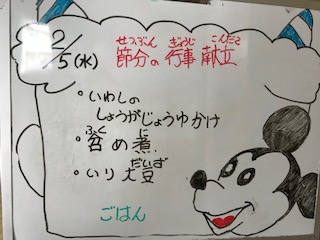 2/5(水)
せつぶん ぎょうじ こんだて
節分の 行事 献立
・いわしの
しょうがじょうゆかけ
ふく に
・含め煮
だいず
・いり大豆
ごはん